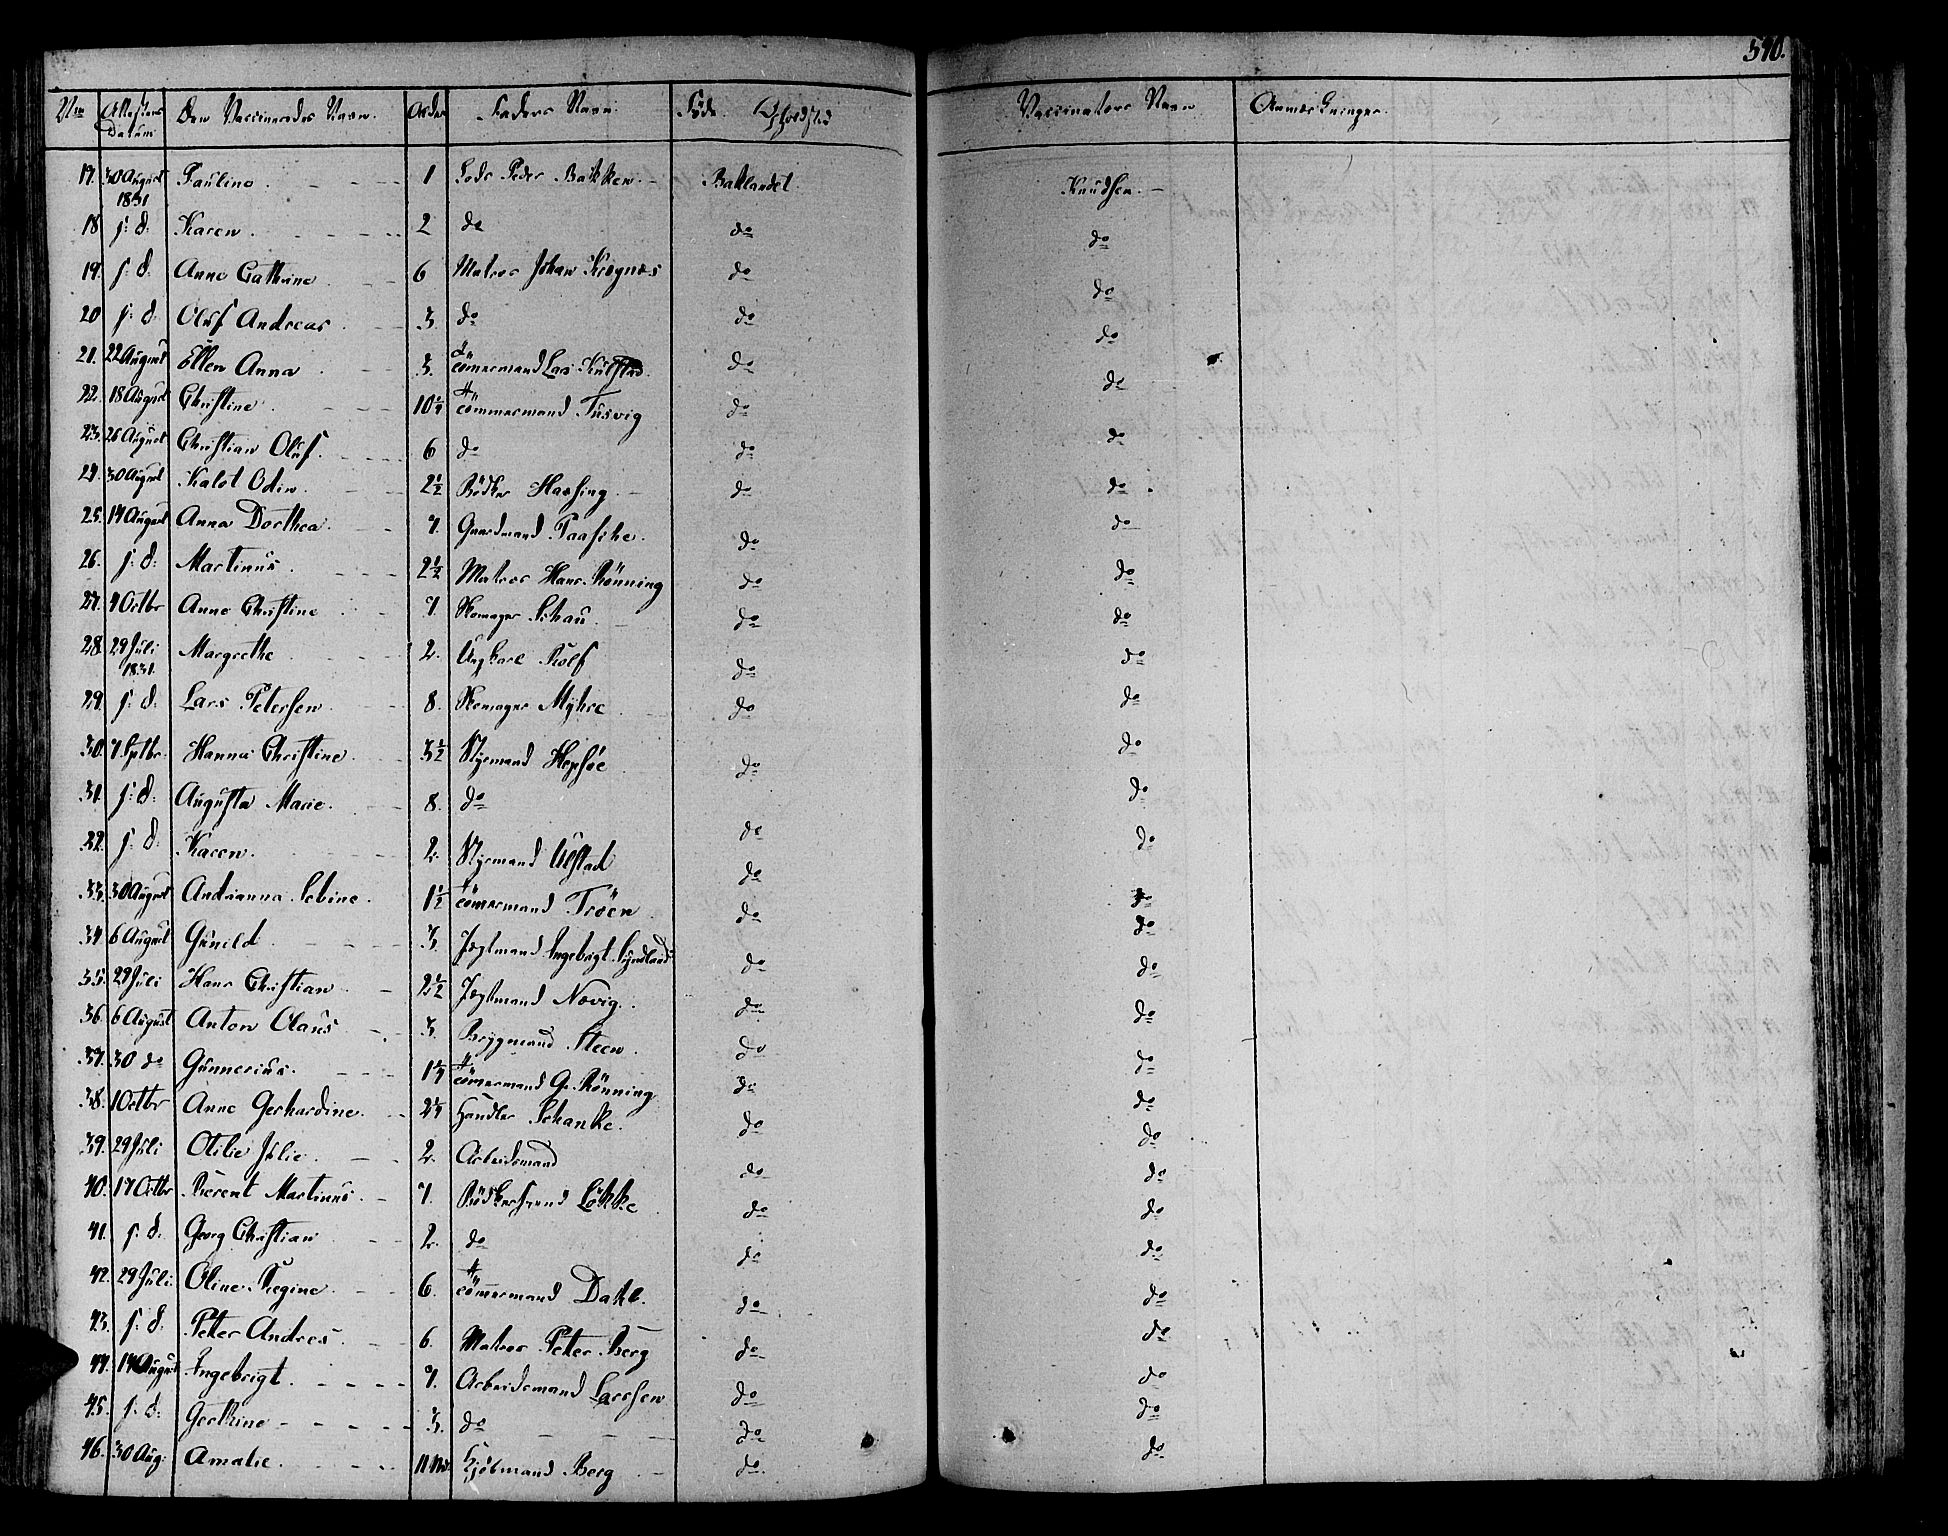 510.
No Attestens Datum. Den Vaccineredes Navn. Alder Faders Navn Føde Opholdsted Vaccinators Navn Anmærkninger.
17. 30 August 1831 Pauline 1 Lods Peder Bakken Baklandet Knudsen
18 s: d. Karen 2 do do do
19. s: d. Anne Cathrine 6 Matros Johan Kregnæs do do
20 s: d. Oluf Andreas 3. do do do
21. 22 August Ellen Anna 3. Tömmermand Lars Kulstad do do
22. 18 August Christine 10½ Tömmermand Tusvig do do
23. 26 August Christian Oluf 6 do do do
24 30 August Kalot Odin 2½ Bödker Hassing do do
25. 14 August Anna Dorthea 4. Gaardmand Paasche do do
26. s: d: Martinus 2½ Matros Hans Rönning do do
27. 4 Octbr Anne Christine 4. Skomager Schau do do
28. 29 Juli 1831. Margrethe 2. Ungkarl Rolf do do
29. s: d: Lars Petersen 8. Skomager Myhre do do
30. 4 Septbr. Hanna Christine 3½ Styrmand Hepsöe do do
31. s: d: Augusta Marie 8. do do do
32. s: d: Karen. 2. Styrmand Ulstad do do
33. 30 August Andrianna Sebine 1½ Tömmermand Tröen do do
34 6 August Gunild 3. Jægtmand Ingebrigt Syndland do do
35. 29 Juli Hans Christian 2½ Jægtmand Nævig do do
36. 6 August Anton Olaus 3. Bryggmand Steen do do
37. 30 do Gunnerius. 1¼ Tömmermand G. Rönning do do
38. 1 Octbr Anne Gerhardine 2¼ Handler Schanke do do
39. 29 Juli Otilie Julie 2. Arbeidsmand do do
40. 17 Octbr Berent Martinus 4. Bödkersvend Lökke do do
41. s: d. Georg Christian 2. do do do
42. 29 Juli. Oline Regine 6. Tömmermand Dahl. do do
43. s: d. Peter Andres 6. Matros Petter Berg do do
44. 14 August Ingebrigt 4. Arbeidsmand Larsen do do
45. s: d. Gertrine 3. do do do
46. 30 Aug: Amalie 11 Md. Kjöbmand Berg do do